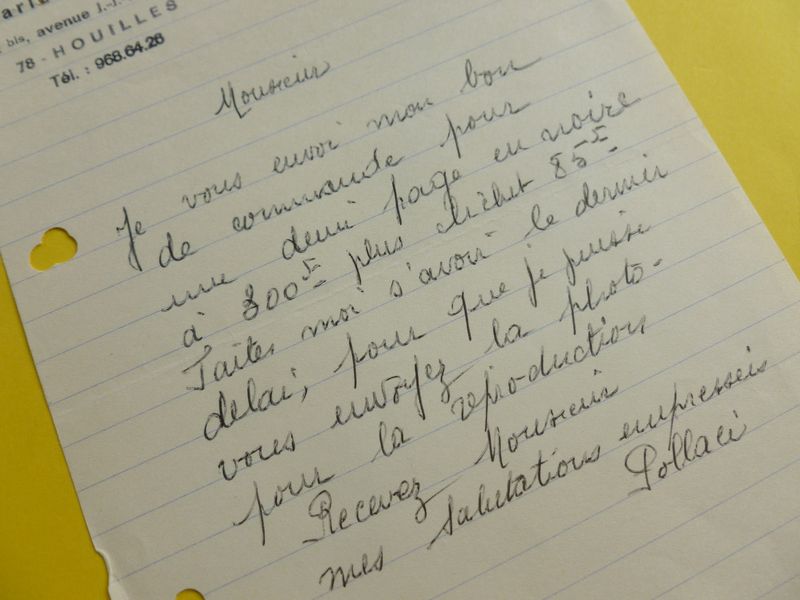 bis, avenue J.-J.
78 - HOUILLES
Tél. : 968.64.26
Monsieur
Je vous envoi mon bon
de commande pour
une demi page en noire
à 300F plus clichet 85F
Faites moi s'avoir le dernier
delai, pour que je puisse
vous envoyez la photo-
pour la reproduction
Recevez Monsieur
mes salutations empresseis
Pollaci